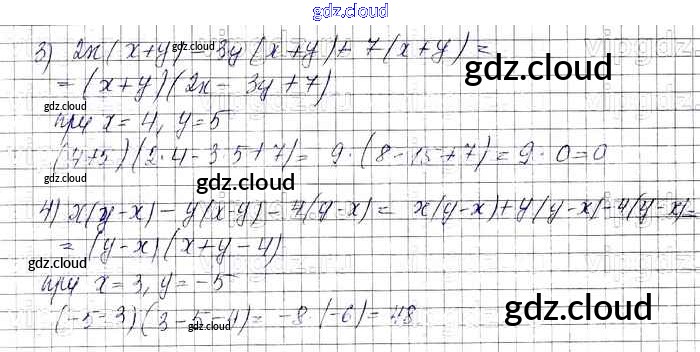 gdz.cloud
3) 2x(x+y) - 3y(x+y) + 7(x+y) =
= (x+y)(2x - 3y + 7)
gdz.cloud
при x = 4, y = 5
(4+5)(2·4 - 3·5 + 7) = 9·(8 - 15 + 7) = 9·0 = 0
gdz.cloud
gdz.cloud
4) x(y-x) - y(x-y) - 4(y-x) = x(y-x) + y(y-x) - 4(y-x) =
= (y-x)(x+y-4)
gdz.cloud
при x = 3, y = -5
gdz.cloud
(-5-3)(3-5-4) = -8·(-6) = 48
gdz.cloud